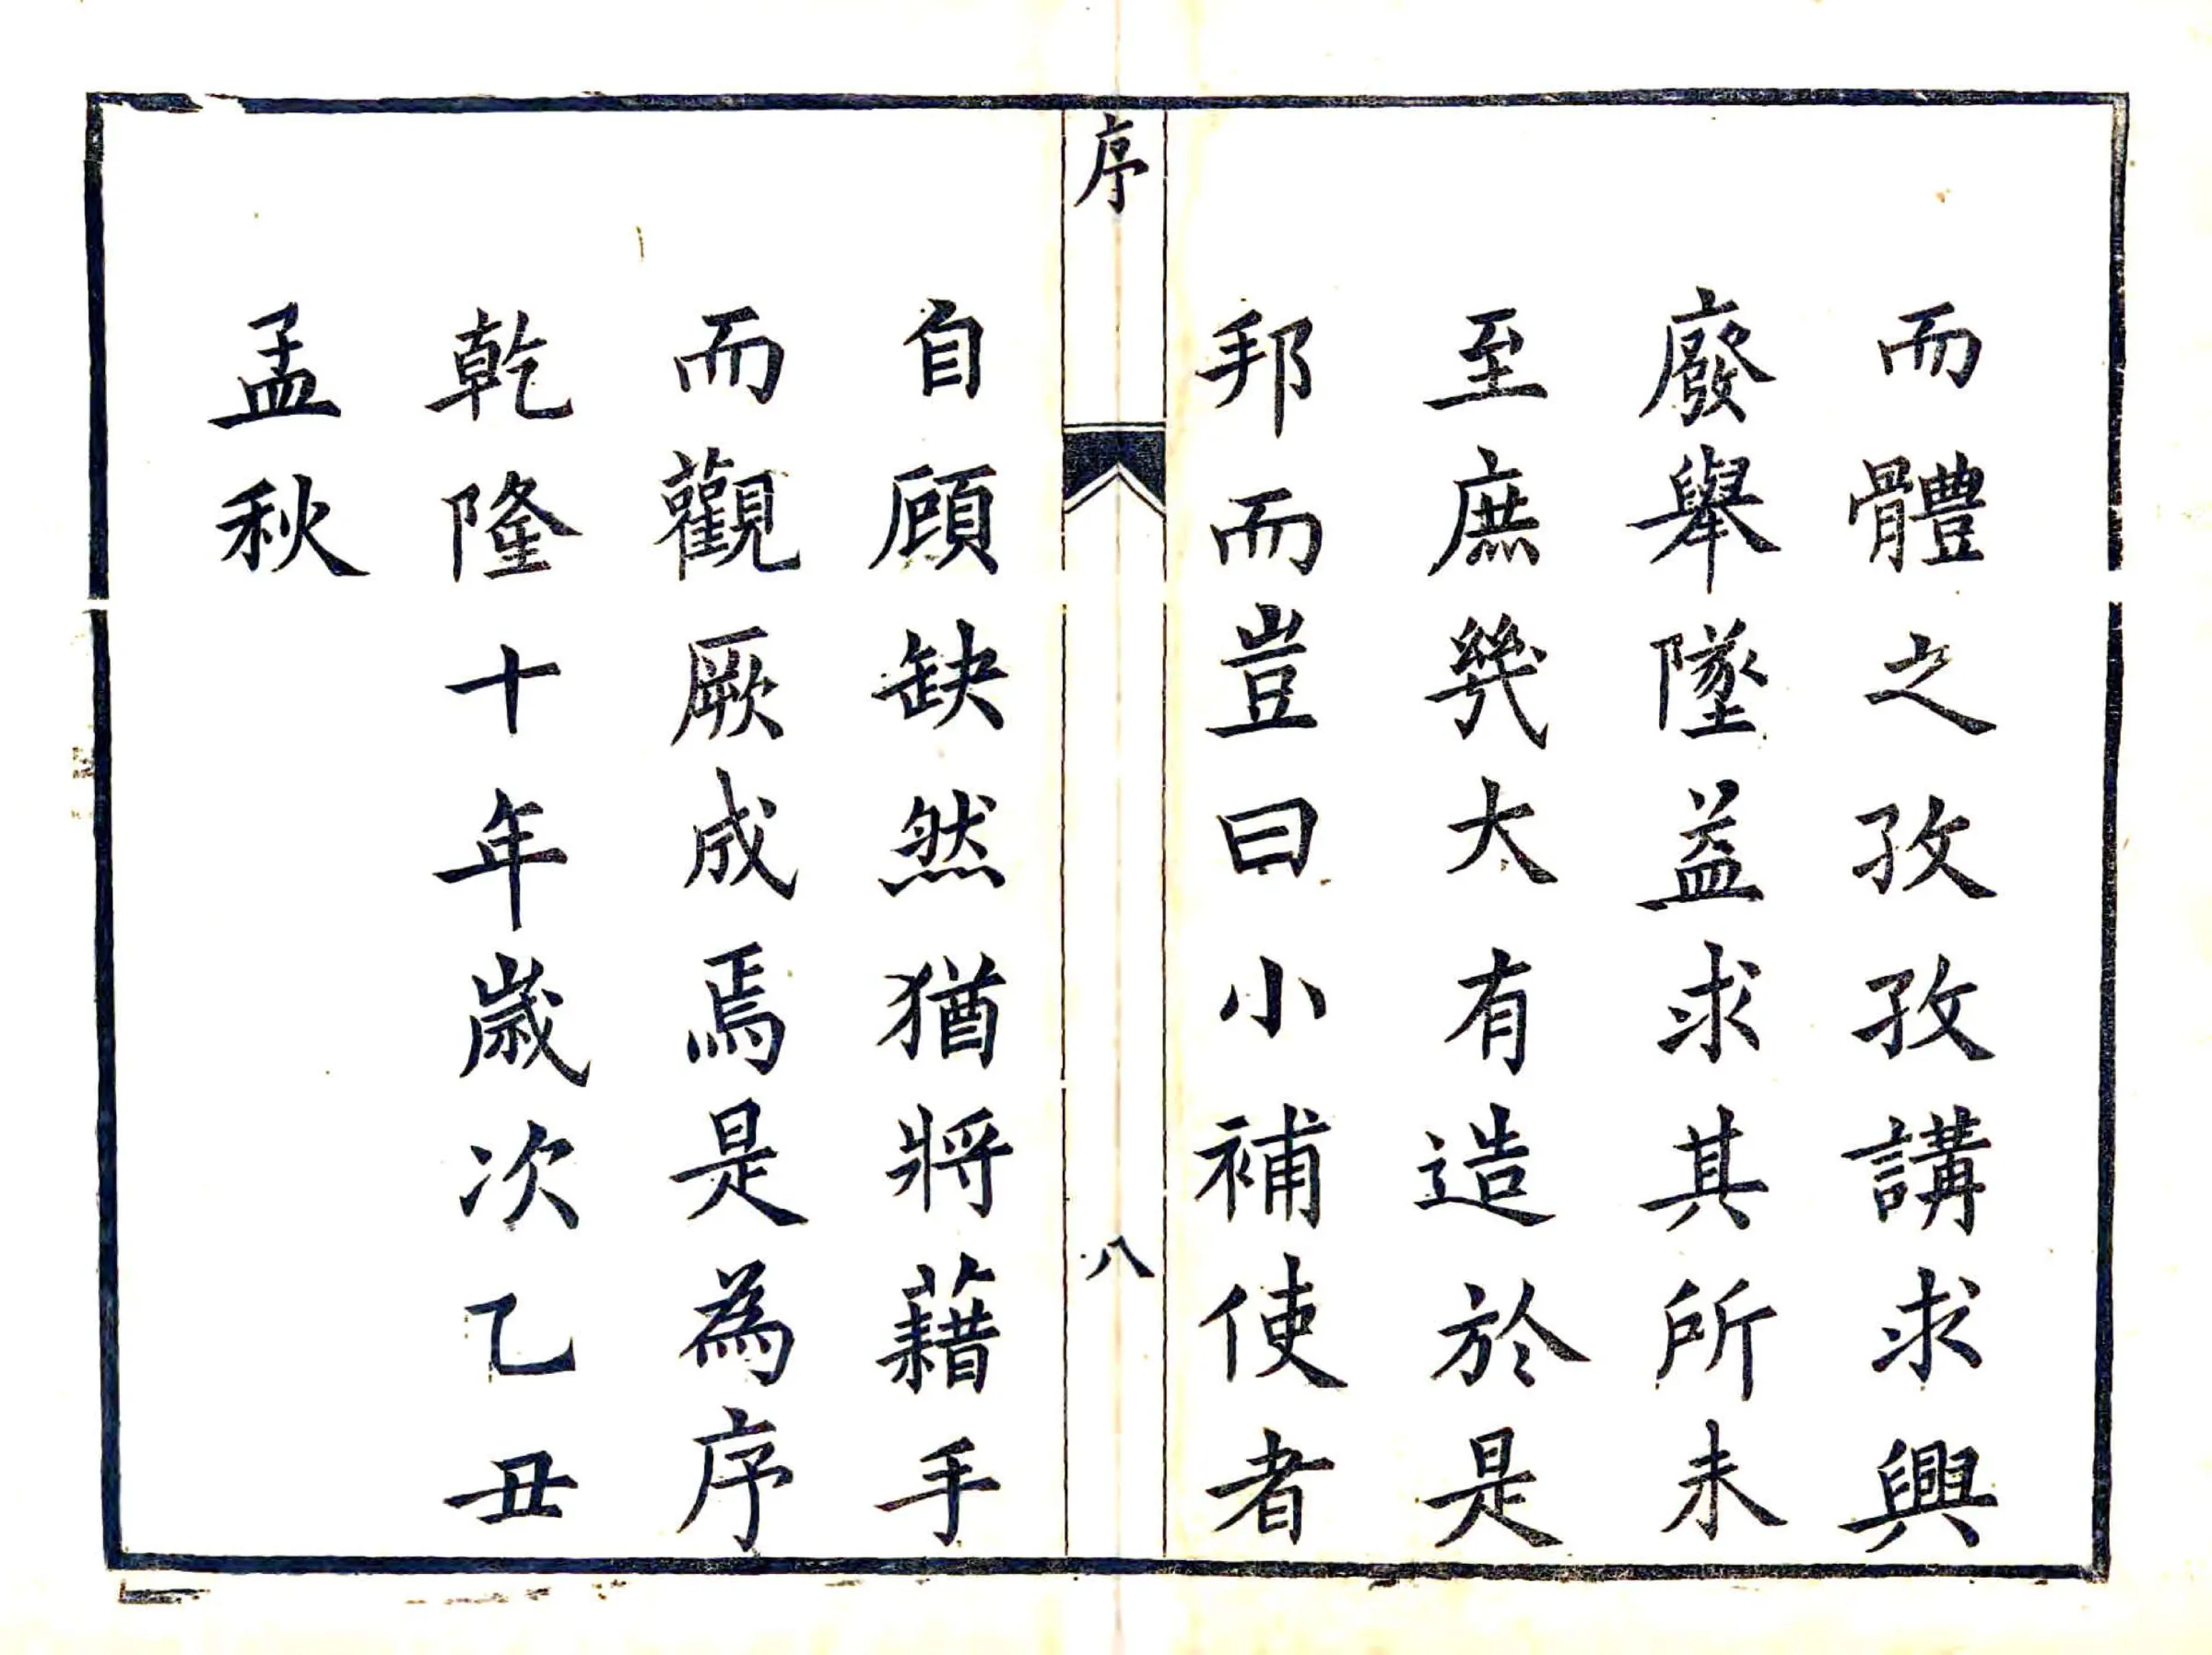 而體之孜孜講求興
廢舉墜益求其所未
至庶幾大有造於是
邦而豈曰小補使者
序
八
自顧缺然猶將藉手
而觀厥成焉是為序
乾隆十年歲次乙丑
孟秋